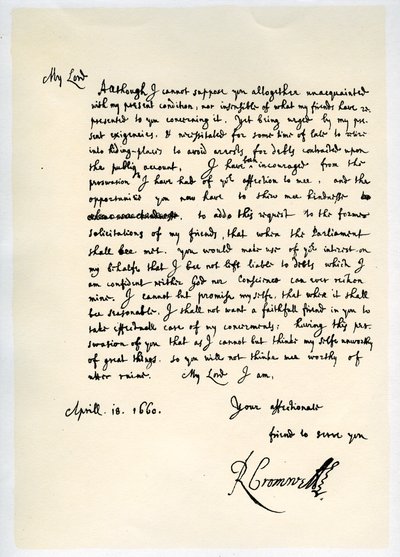 My Lord
Allthough I cannot suppose you alltogether unacquainted
with my present condition, nor insensible of what my friends have re
presented to you concerning it. yet being urged by my pre
sent exigencies. & necessitated for some time of late to retire
into hiding-places to avoid arrests for debts contracted upon
the publiq account. I have been incouraged from the
perswation I have had of yor affection to mee. and the
opportunitie you now have to shew mee kindnesse
to adde this request to the former
solicitations of my friends, that when the Parliament
shall bee met. you would make use of yor interest on
my behalfe that I bee not left liable to debts which I
am confident neither God nor Conscience can ever reckon
mine. I cannot but promise my selfe. that when it shall
bee seasonable. I shall not want a faithfull friend in you to
take effectuall care of my concernments: having this per
swation of you that as I cannot but thinke my selfe unworthy
of great things. so you will not thinke mee worthy of
utter ruine. My Lord I am,
Aprill. 18. 1660. Your affectionate
friend to serve you
R Cromwell